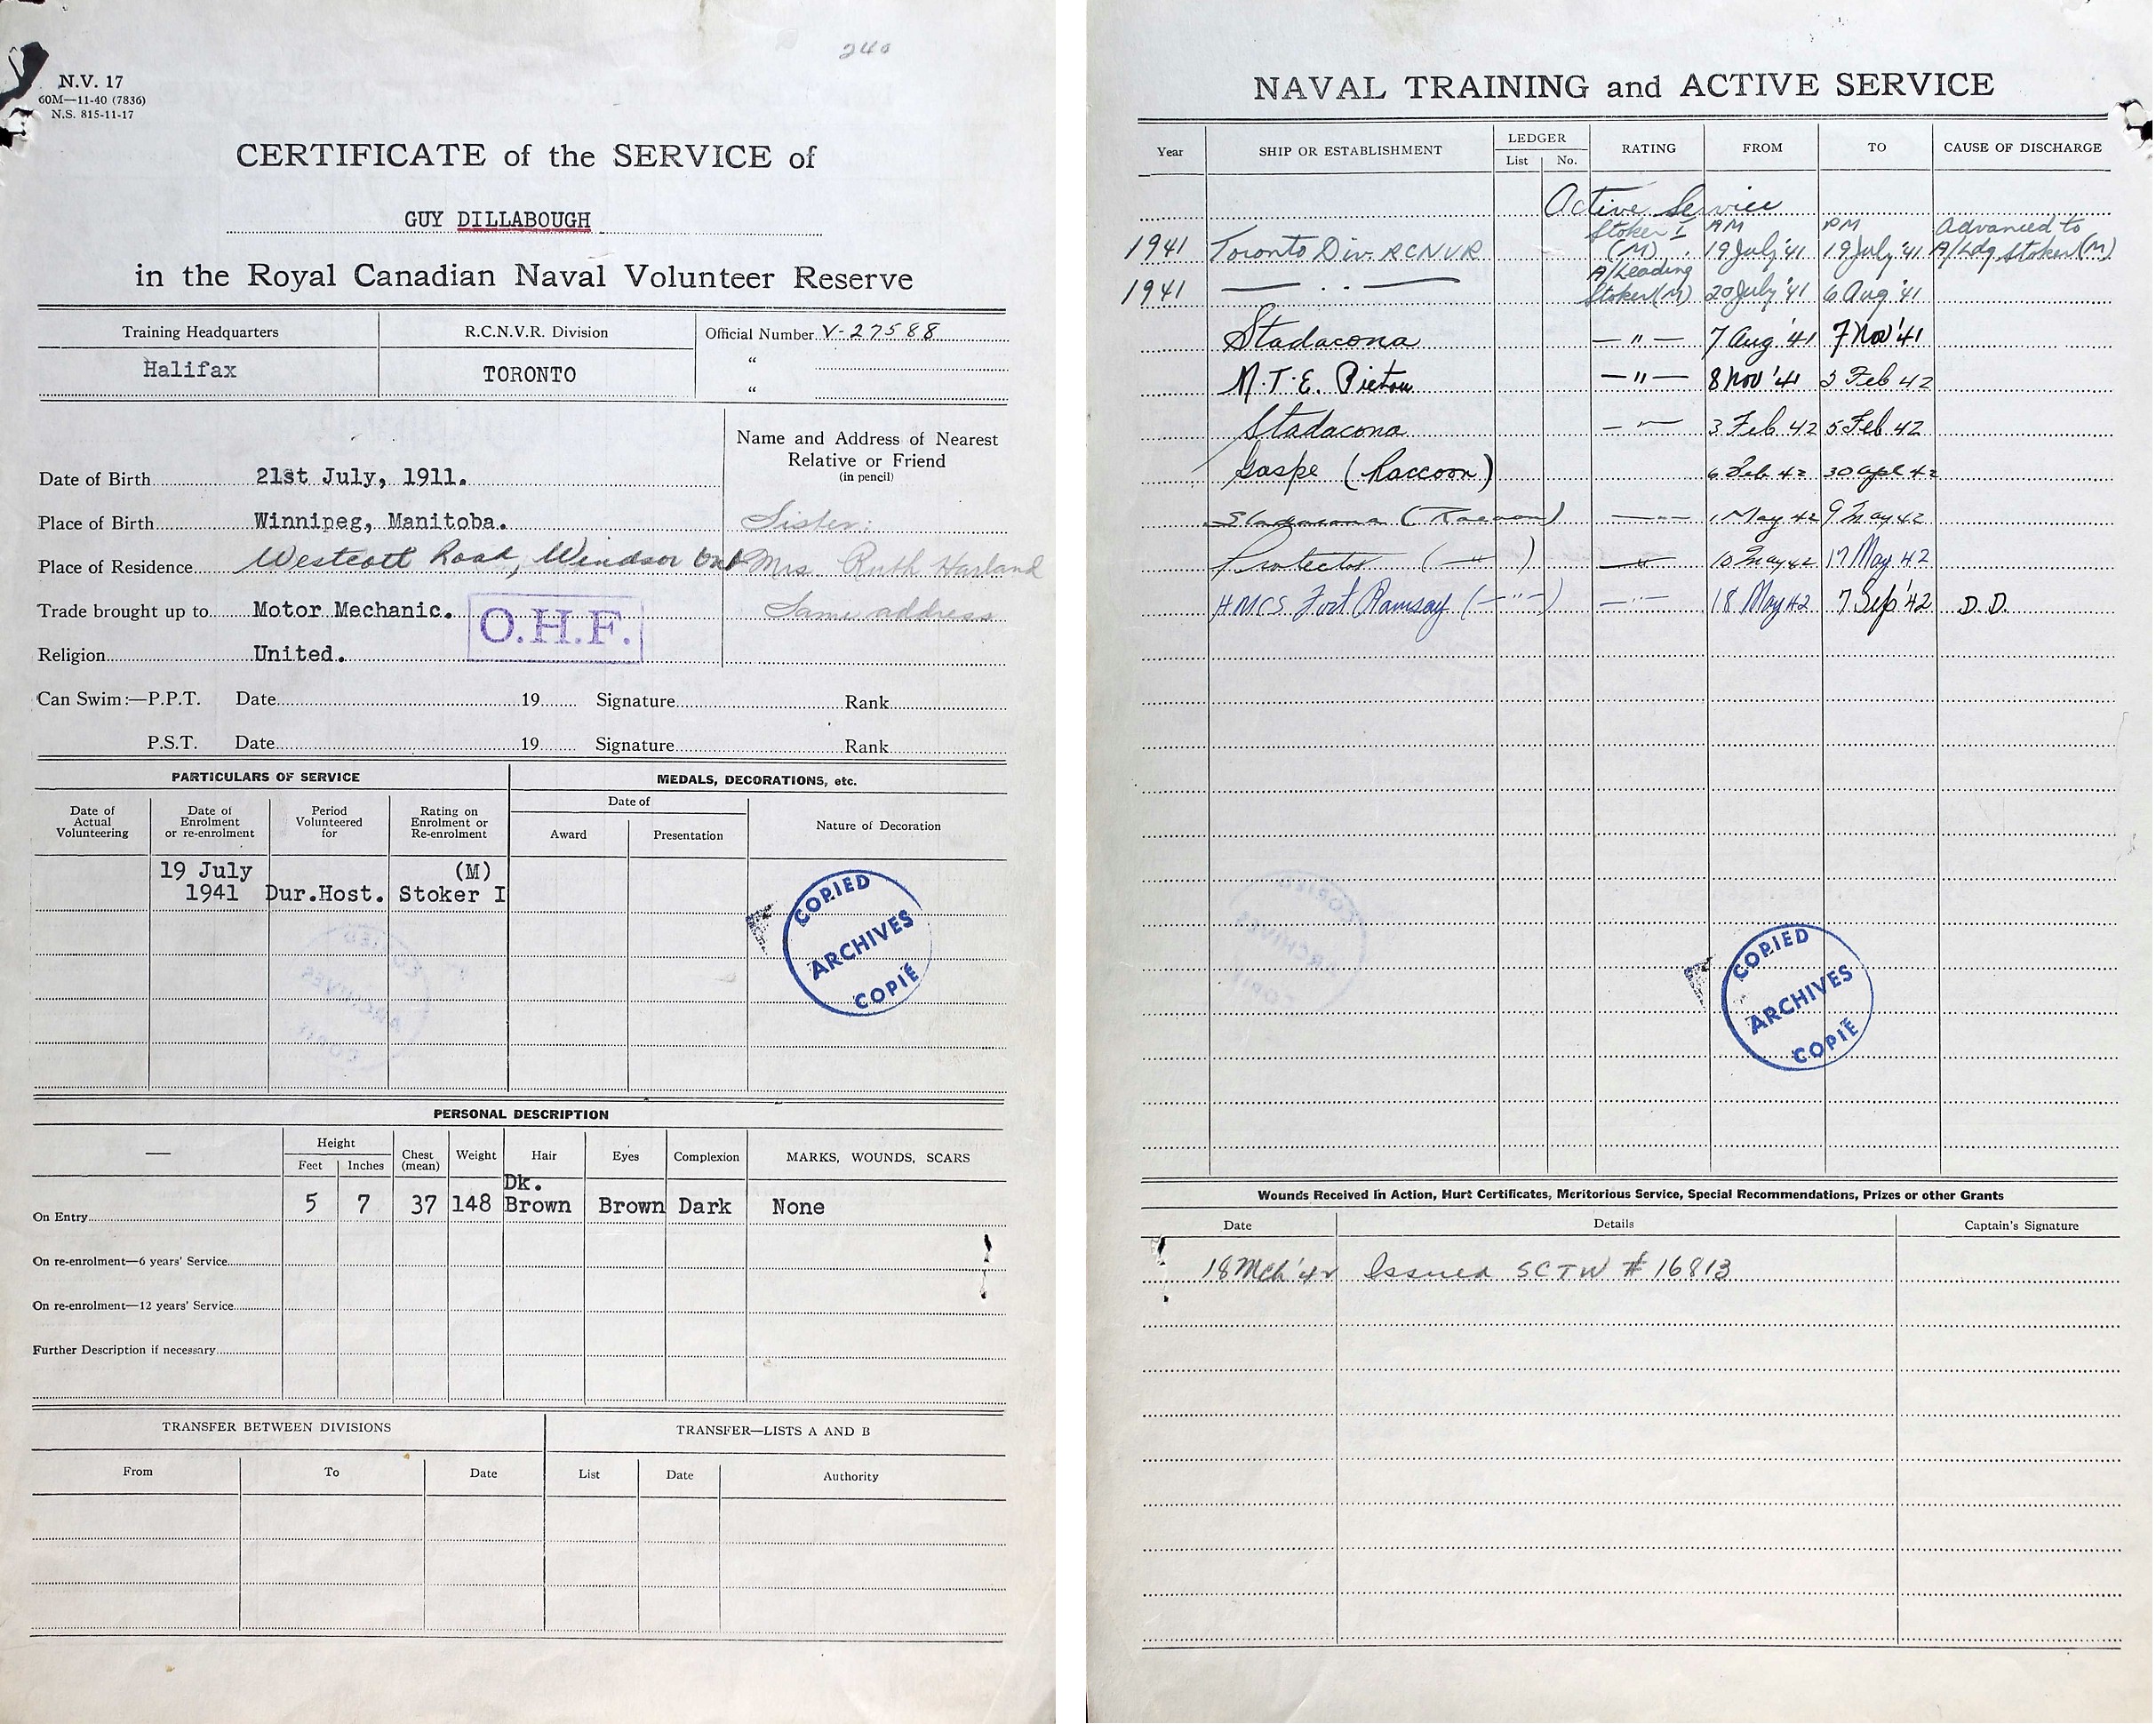 240
N.V. 17
60M—11-40 (7836)
N.S. 815-11-17
CERTIFICATE of the SERVICE of
GUY DILLABOUGH
in the Royal Canadian Naval Volunteer Reserve
Training Headquarters R.C.N.V.R. Division Official Number V-27588
Halifax TORONTO "
"
Name and Address of Nearest
Relative or Friend
(in pencil)
Date of Birth 21st July, 1911.
Place of Birth Winnipeg, Manitoba. Sister:
Place of Residence Westcott Road, Windsor Ont Mrs. Ruth Harland
Trade brought up to Motor Mechanic. Same address
O.H.F.
Religion United.
Can Swim:—P.P.T. Date 19 Signature Rank
P.S.T. Date 19 Signature Rank
PARTICULARS OF SERVICE MEDALS, DECORATIONS, etc.
Date of Actual Volunteering Date of Enrolment or re-enrolment Period Volunteered for Rating on Enrolment or Re-enrolment Date of Award Presentation Nature of Decoration
19 July (M)
1941 Dur.Host. Stoker I
COPIED
ARCHIVES
COPIÉ
PERSONAL DESCRIPTION
— Height Feet Inches Chest (mean) Weight Hair Eyes Complexion MARKS, WOUNDS, SCARS
Dk.
On Entry 5 7 37 148 Brown Brown Dark None
On re-enrolment—6 years' Service
On re-enrolment—12 years' Service
Further Description if necessary
TRANSFER BETWEEN DIVISIONS TRANSFER—LISTS A AND B
From To Date List Date Authority
NAVAL TRAINING and ACTIVE SERVICE
Year SHIP OR ESTABLISHMENT LEDGER List No. RATING FROM TO CAUSE OF DISCHARGE
Active Service
Stoker I AM PM Advanced to
1941 Toronto Div. RCNVR (M) 19 July '41 19 July '41 A/Ldg Stoker (M)
A/Leading
1941 — .. — Stoker (M) 20 July '41 6 Aug '41
Stadacona — " — 7 Aug '41 7 Nov '41
M.T.E. Pictou — " — 8 Nov '41 2 Feb 42
Stadacona — " — 3 Feb 42 5 Feb 42
Gaspe (Raccoon) 6 Feb 42 30 Apl 42
Stadacona (Raccoon) — " — 1 May 42 9 May 42
Protector (— " —) — " — 10 May 42 17 May 42
HMCS Fort Ramsay (— " —) — " — 18 May 42 7 Sep '42 D.D.
COPIED
ARCHIVES
COPIÉ
Wounds Received In Action, Hurt Certificates, Meritorious Service, Special Recommendations, Prizes or other Grants
Date Details Captain's Signature
18 Mch '42 Issued SCTW # 16813